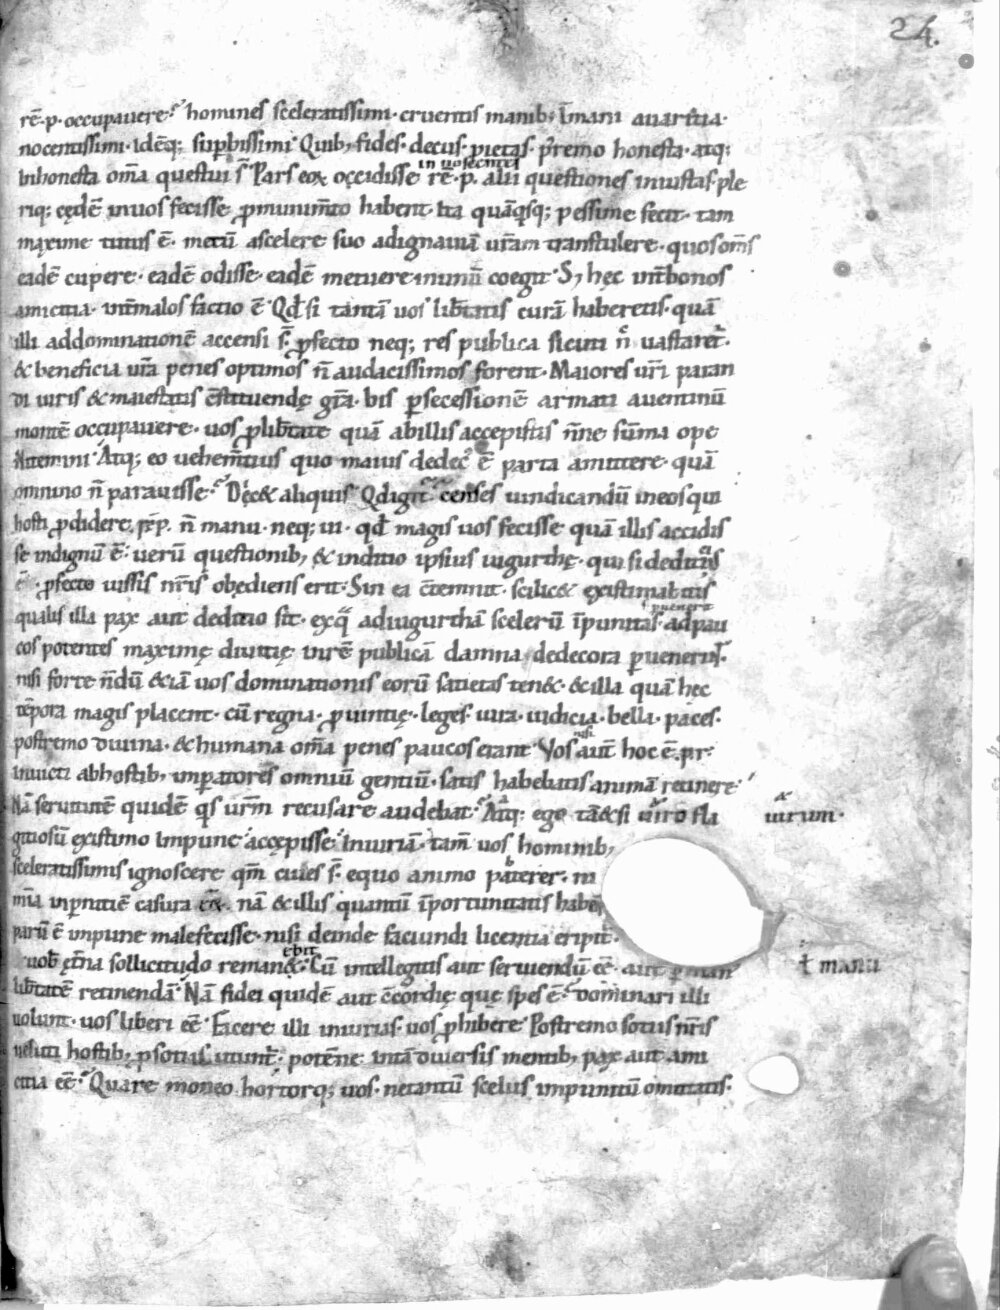 24.
rē·p· occupauere? homines sceleratissimi· cruentis manib; īmani auaritia·
nocentissimi· Idēq; supbissimi· Quib; fides· decus· pietas· p̄remo honesta· atq;
in uos cinctes
Inhonesta om̄a questui s̄· Pars eoꝝ occidisse rē·p· alii questiones iniustas· ple
riq; cędē inuos fecisse ꝓmunim̄to habent· Ita quāq̄sq; pessime fecit· tam
maxime tutus ē· metū ascelere suo adignauiā ur̄am transtulere· quosom̄s
eadē cupere· eadē odisse· eadē metuere inunū coegit· S; hęc int̄bonos
amicitia· int̄malos factio ē· Qd̄ si tantā uos lib̄tatis curā haberetis· quā
illi addominationē accensi s̄· ꝓfecto neq; res publica sicuti n̄ uastaret̄·
& beneficia ur̄a penes optimos n̄ audacissimos forent· Maiores ur̄i paran
di iuris & maiestatis c̄stituendę gr̄a· bis ꝑsecessionē armati auentinū
montē occupauere· uos ꝓlib̄tate quā abillis accepistis n̄ne sūma ope
Nitemini· Atq; eo uehem̄tius quo maius dedec' ē parta amittere· quā
omnino n̄ parauisse? Dęc& aliquis· Qdigit̄ censes uindicandū ineos qui
hosti ꝓdidere rē·p· n̄ manu· neq; ui· qd̄ magis uos fecisse quā illis accidis
se indignū ē· uerū questionib; & inditio ipsius iugurthę· qui si dediticius
ē· ꝓfecto iussis nr̄is obędiens erit· Sin ea c̄temnit· scilic& ęxistimabitis
qualis illa pax aut deditio sit· exq̄ adiugurthā scelerū īpunitas· adpau
puenerit
cos potentes maximę diuitię inrē publicā damna dedecora ꝑuenerint·
nisi forte n̄dū &iā uos dominationis eorū satietas ten&· &illa quā hęc
tēpora magis placent· cū regna· ꝓuintię· leges· iura· iudicia· bella· paces·
nisi
postremo diuina· &humana om̄a penes paucos erant· Vos aut̄ hoc ē·p·r·
inuicti abhostib; imperatores omniū gentiū· satis habebatis animā retinere·
Nā seruitutē quidē q̄s ur̄m recusare audebat? Atq; ego tā&si uiro fla
uirum·
gitiosū ęxistimo impune accępisse iniuriā· tam̄ uos hominib;
sceleratissimis ignoscere qm̄ ciues s̄· equo animo paterer· ni
mīa inꝑnitiē casura eēt· nā &illis quantū īportunitatis habe
parū ē impune malefecisse· nisi deinde faciundi licentia eripit̄·
ebit
uob̄ ęt̄na sollicitudo reman&· Cū intellegitis aut seruiendū eē· aut ꝑ man
ł manu
lib̄tatē retinendā· Nā fidei quidē aut c̄cordię quę spes ē? Dominari illi
uolunt· uos liberi eē· Facere illi iniurias· uos ꝓhibere· Postremo sotiis nr̄is
ueluti hostib; ꝑ sotiis utunt̄· potēne intā diuersis mentib; pax aut ami
citia eē? Quare moneo hortorq; uos· netantū scelus impunitū omittatis·